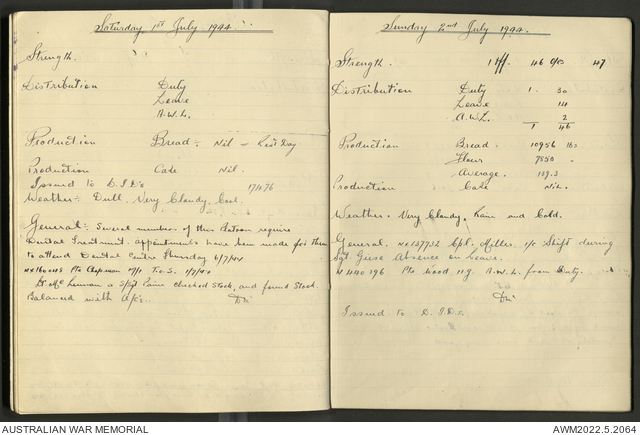 Saturday 1st July 1944
Strength.
Distribution Duty
Leave
A.W.L.
Production Bread :- Nil - Rest Day
Production Cake Nil.
Issued to D.I.D's 17/1076
Weather :- Dull. Very Cloudy, Cool.
General :- Several members of this Platoon require
Dental Treatment. appointments have been made for them
to attend Dental Centre Thursday 6/7/44
Pte Chapman T.O.S. 1/7/44
Lt. Mc Lennan & S/Sgt Paine checked stock, and found Stock
Balanced with A/c's.
Sunday 2nd July 1944.
Strength. 1 Off. 46 O/Rs 47
Distribution Duty 1. 30
Leave 14
A.W.L. 2
1 46
Production Bread. 10956 lbs
Flour 7850 "
Average. 139.5
Production Cake Nil.
Weather. Very Cloudy, Rain and Cold.
General. NX137732 Cpl. Miller. i/c Shift during
Sgt. Absence on Leave.
Pte Wood A.W.L. from Duty.
Issued to D.I.Ds.
AUSTRALIAN WAR MEMORIAL
AWM2022.5.2064